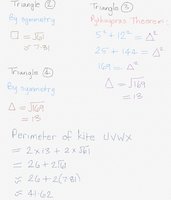 Triangle ②
By symmetry
□ = √61
≈ 7.81
Triangle ③
Pythagoras Theorem:
5² + 12² = △²
25 + 144 = △²
169 = △²
△ = √169
= 13
Triangle ④
By symmetry
△ = √169
= 13
Perimeter of kite UVWX
= 2 x 13 + 2 x √61
= 26 + 2√61
≈ 26 + 2(7.81)
≈ 41.62